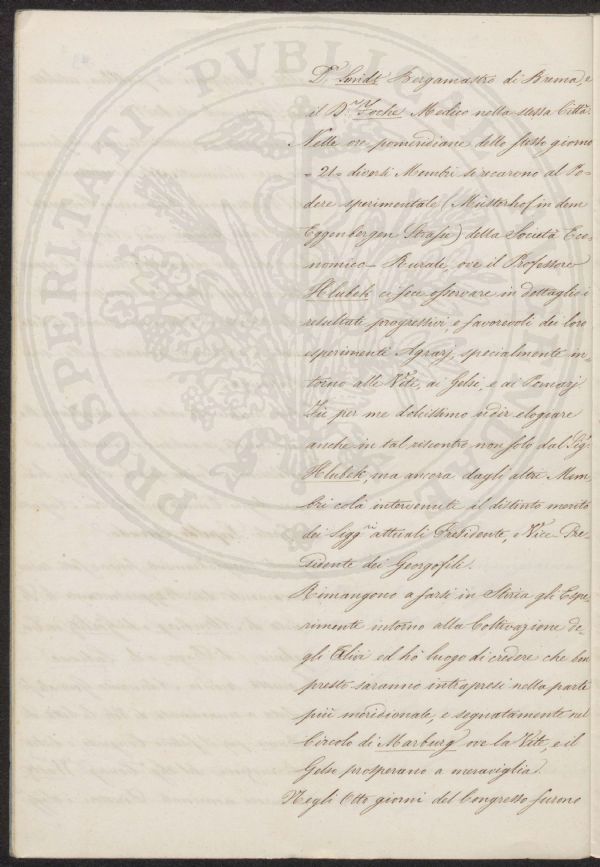 Dr. Smidt Borgamastro di Brema, e
il Dr. Foche Medico nella stessa Città.
Nelle ore pomeridiane dello stesso giorno
= 21 = diversi Membri si recarono al Po-
dere sperimentale (Müsterhof in dem
Eggenbergen Strasse) della Società Eco-
nomico-Rurale, ove il Professore
Hlubek ci fece osservare in dettaglio i
resultati progressivi, e favorevoli dei loro
esperimenti Agrarj, specialmente in-
torno alle Viti, ai Gelsi, e ai Pomarj
Fù per me dolcissimo udir elogiare
anche in tal riscontro non solo dal Sigr.
Hlubek, ma ancora dagli altri Mem
bri colà intervenuti il distinto merito
dei Siggri. attuali Presidente, e Vice-Pre-
sidente dei Georgofili.
Rimangono a farsi in Stiria gli Espe-
rimenti intorno alla Coltivazione de-
gli Olivi ed hò luogo di credere che ben
presto saranno intrapresi nella parte
più meridionale, e segnatamente nel
Circolo di Marburg ove la Vite, e il
Gelso prosperano a meraviglia.
Negli Otto giorni del Congresso furono
PROSPERITATI PVBLICAE